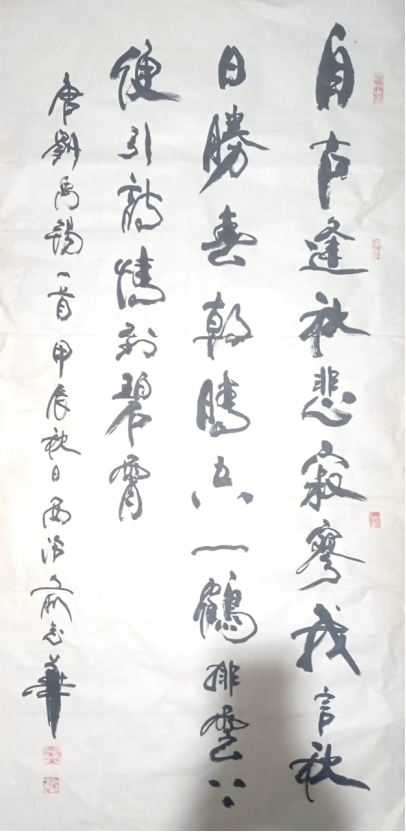 自古逢秋悲寂寥我言秋
日勝春朝晴空一鶴排雲上
便引詩情到碧霄
唐劉禹錫一首甲辰秋日西泠俞志華